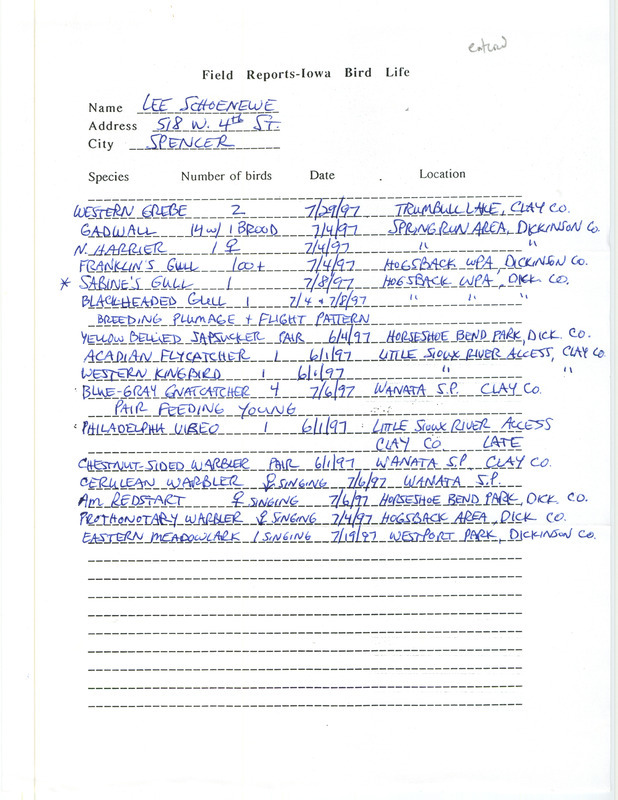 Field Reports-Iowa Bird Life
Name LEE SCHOENEWE
Address 518 W. 4th ST.
City SPENCER
Species Number of birds Date Location
WESTERN GREBE 2 7/29/97 TRUMBULL LAKE, CLAY CO.
GADWALL 14 w/ 1 BROOD 7/4/97 SPRING RUN AREA, DICKINSON CO.
N. HARRIER 1 ♀ 7/4/97 " "
FRANKLIN'S GULL 100+ 7/4/97 HOGSBACK WPA, DICKINSON CO.
* SABINE'S GULL 1 7/8/97 HOGSBACK WPA, DICK. CO.
BLACKHEADED GULL 1 7/4 + 7/8/97 " " "
BREEDING PLUMAGE + FLIGHT PATTERN
YELLOW BELLIED SAPSUCKER PAIR 6/4/97 HORSESHOE BEND PARK, DICK. CO.
ACADIAN FLYCATCHER 1 6/1/97 LITTLE SIOUX RIVER ACCESS, CLAY CO.
WESTERN KINGBIRD 1 6/1/97 " "
BLUE-GRAY GNATCATCHER 4 7/6/97 WANATA S.P. CLAY CO.
PAIR FEEDING YOUNG
PHILADELPHIA VIREO 1 6/1/97 LITTLE SIOUX RIVER ACCESS
CLAY CO LATE
CHESTNUT-SIDED WARBLER PAIR 6/1/97 WANATA S.P. CLAY CO.
CERULEAN WARBLER ♀ SINGING 7/6/97 WANATA S.P.
AM REDSTART ♀ SINGING 7/6/97 HORSESHOE BEND PARK, DICK. CO.
PROTHONOTARY WARBLER ♀ SINGING 7/4/97 HOGSBACK AREA, DICK CO.
EASTERN MEADOWLARK 1 SINGING 7/19/97 WESTPORT PARK, DICKINSON CO.